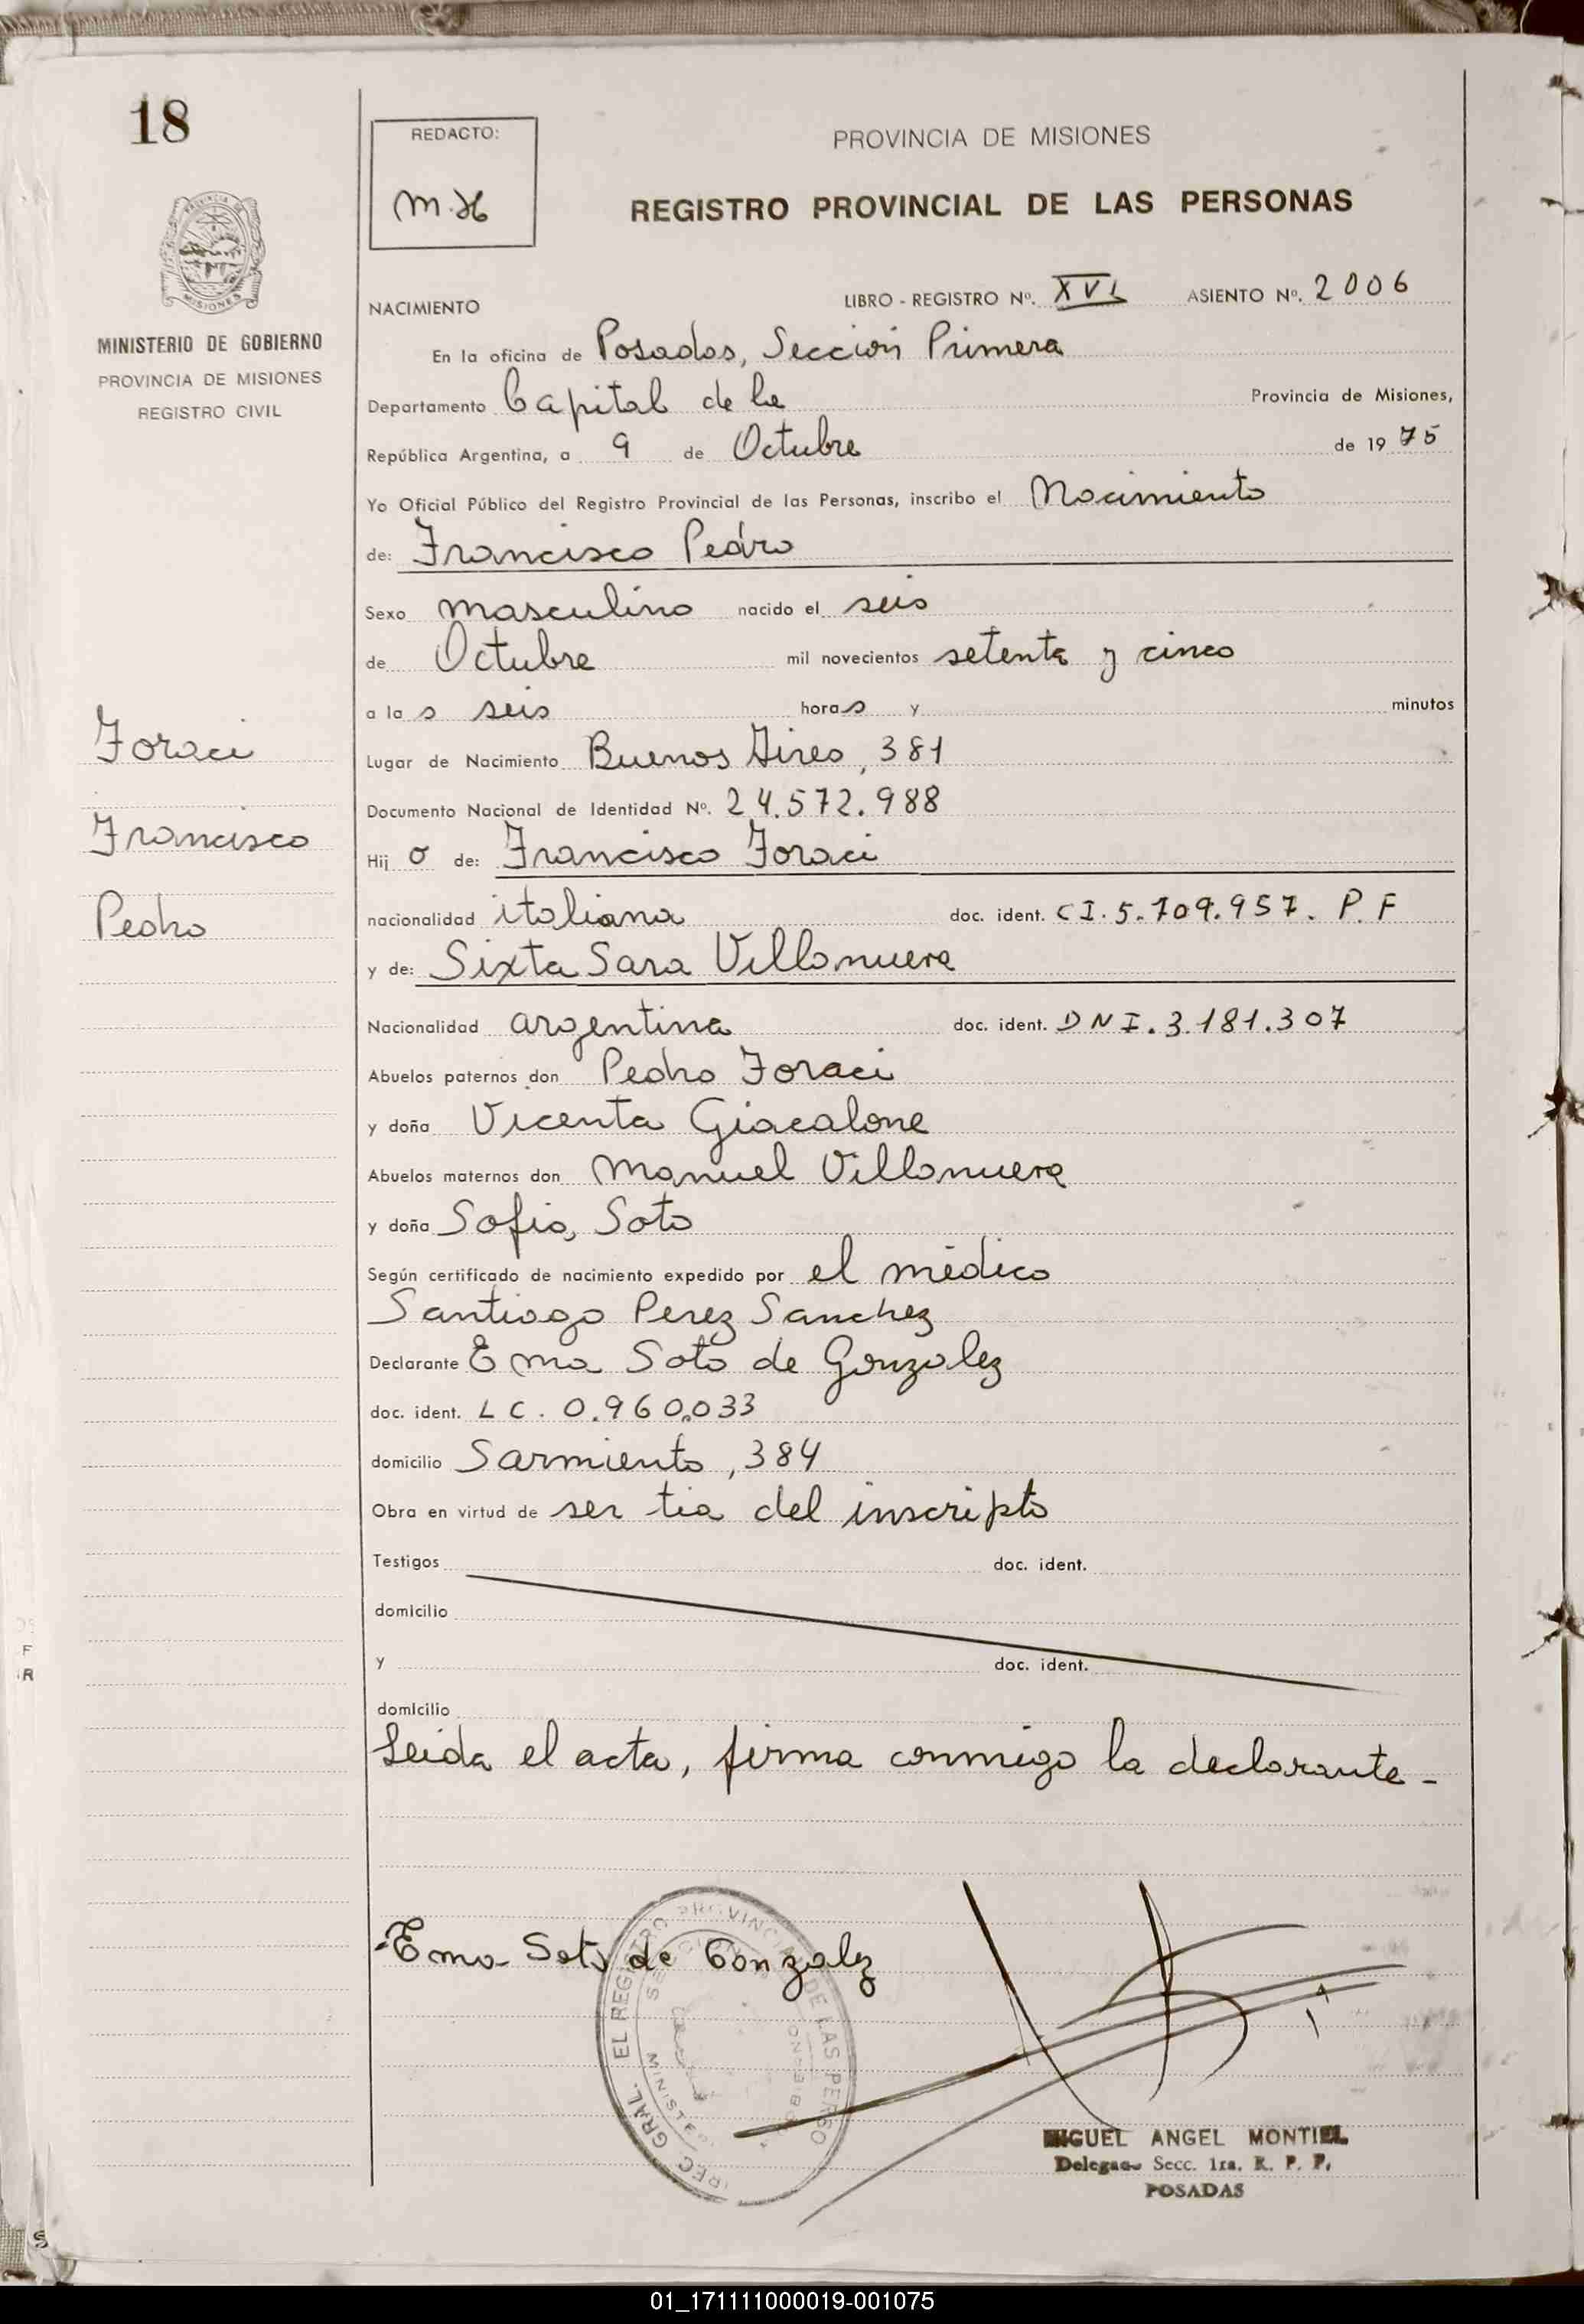 18
REDACTO:
M.H
PROVINCIA DE MISIONES
REGISTRO PROVINCIAL DE LAS PERSONAS
MISIONES
MINISTERIO DE GOBIERNO
PROVINCIA DE MISIONES
REGISTRO CIVIL
NACIMIENTO LIBRO - REGISTRO Nº. XVI ASIENTO Nº. 2006
En la oficina de Posadas, Sección Primera
Departamento Capital de la Provincia de Misiones,
República Argentina, a 9 de Octubre de 1975
Yo Oficial Público del Registro Provincial de las Personas, inscribo el Nacimiento
de: Francisco Pedro
Sexo masculino nacido el seis
de Octubre mil novecientos setenta y cinco
a las seis horas y minutos
Lugar de Nacimiento Buenos Aires, 381
Documento Nacional de Identidad Nº. 24.572.988
Hijo de: Francisco Foraci
nacionalidad italiana doc. ident. CI. 5.709.957. P. F
y de: Sixta Sara Villanueva
Nacionalidad argentina doc. ident. DNI. 3.181.307
Abuelos paternos don Pedro Foraci
y doña Vicenta Giacalone
Abuelos maternos don Manuel Villanueva
y doña Sofia, Soto
Según certificado de nacimiento expedido por el médico
Santiago Perez Sanchez
Declarante Ema Soto de Gonzalez
doc. ident. LC. 0.960.033
domicilio Sarmiento, 384
Obra en virtud de ser tia del inscripto
Testigos doc. ident.
domicilio
y doc. ident.
domicilio
Leida el acta, firma conmigo la declarante -
Foraci
Francisco
Pedro
Ema Soto de Gonzalez
GRAL. EL REGISTRO PROVINCIAL DE LAS PERSO
MIGUEL ANGEL MONTIEL
Delegado Secc. 1ra. R. P. P.
POSADAS
01_171111000019-001075